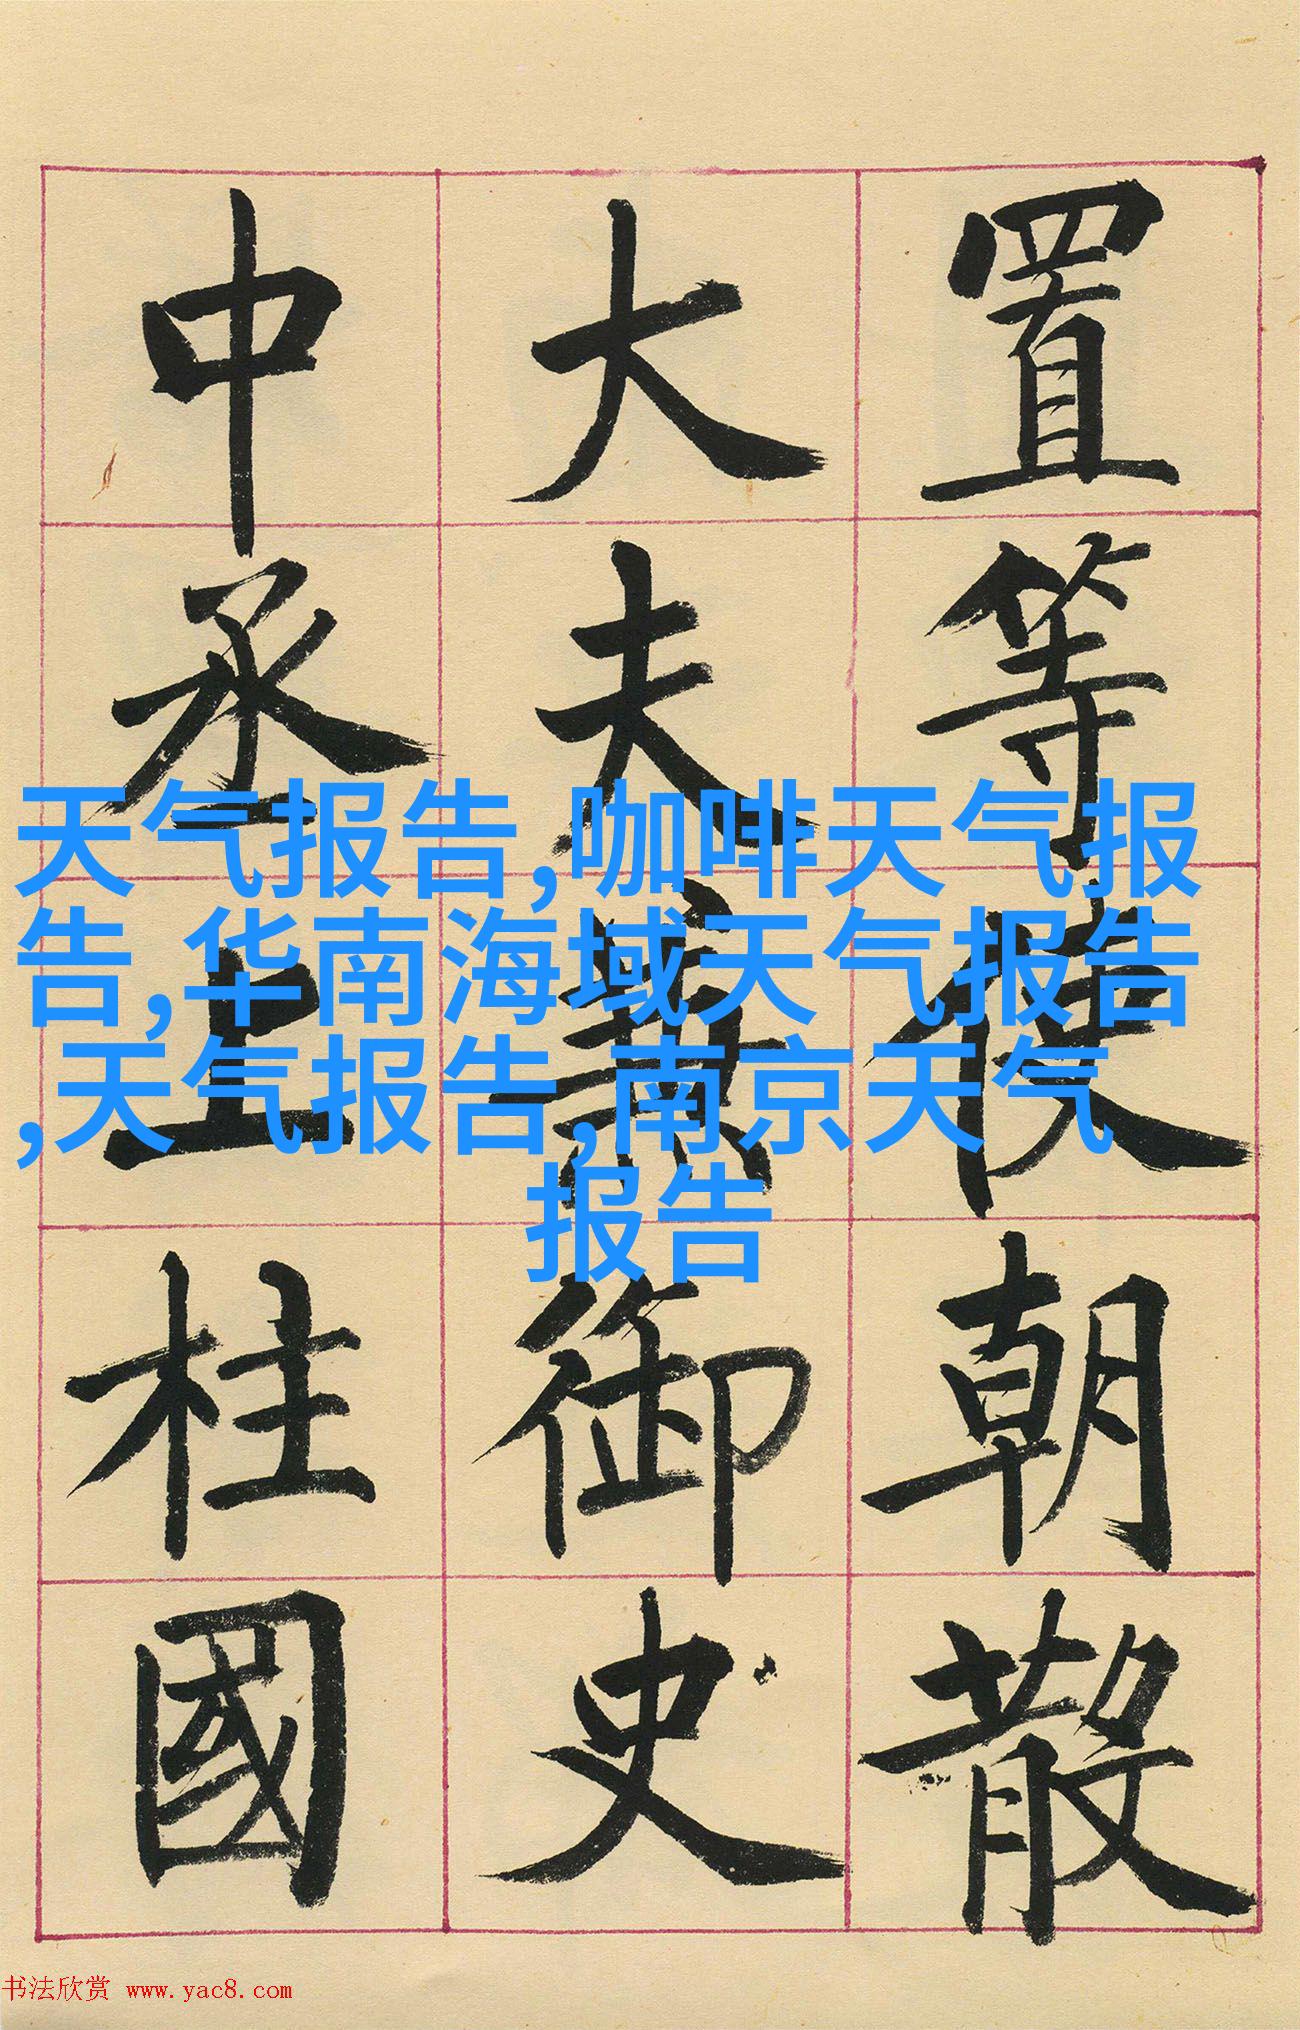 置等使朝散
大夫兼御史
中丞上柱國
天气报告,咖啡天气报
告,华南海域天气报告
,天气报告,南京天气
报告
书法欣赏 www.yac8.com